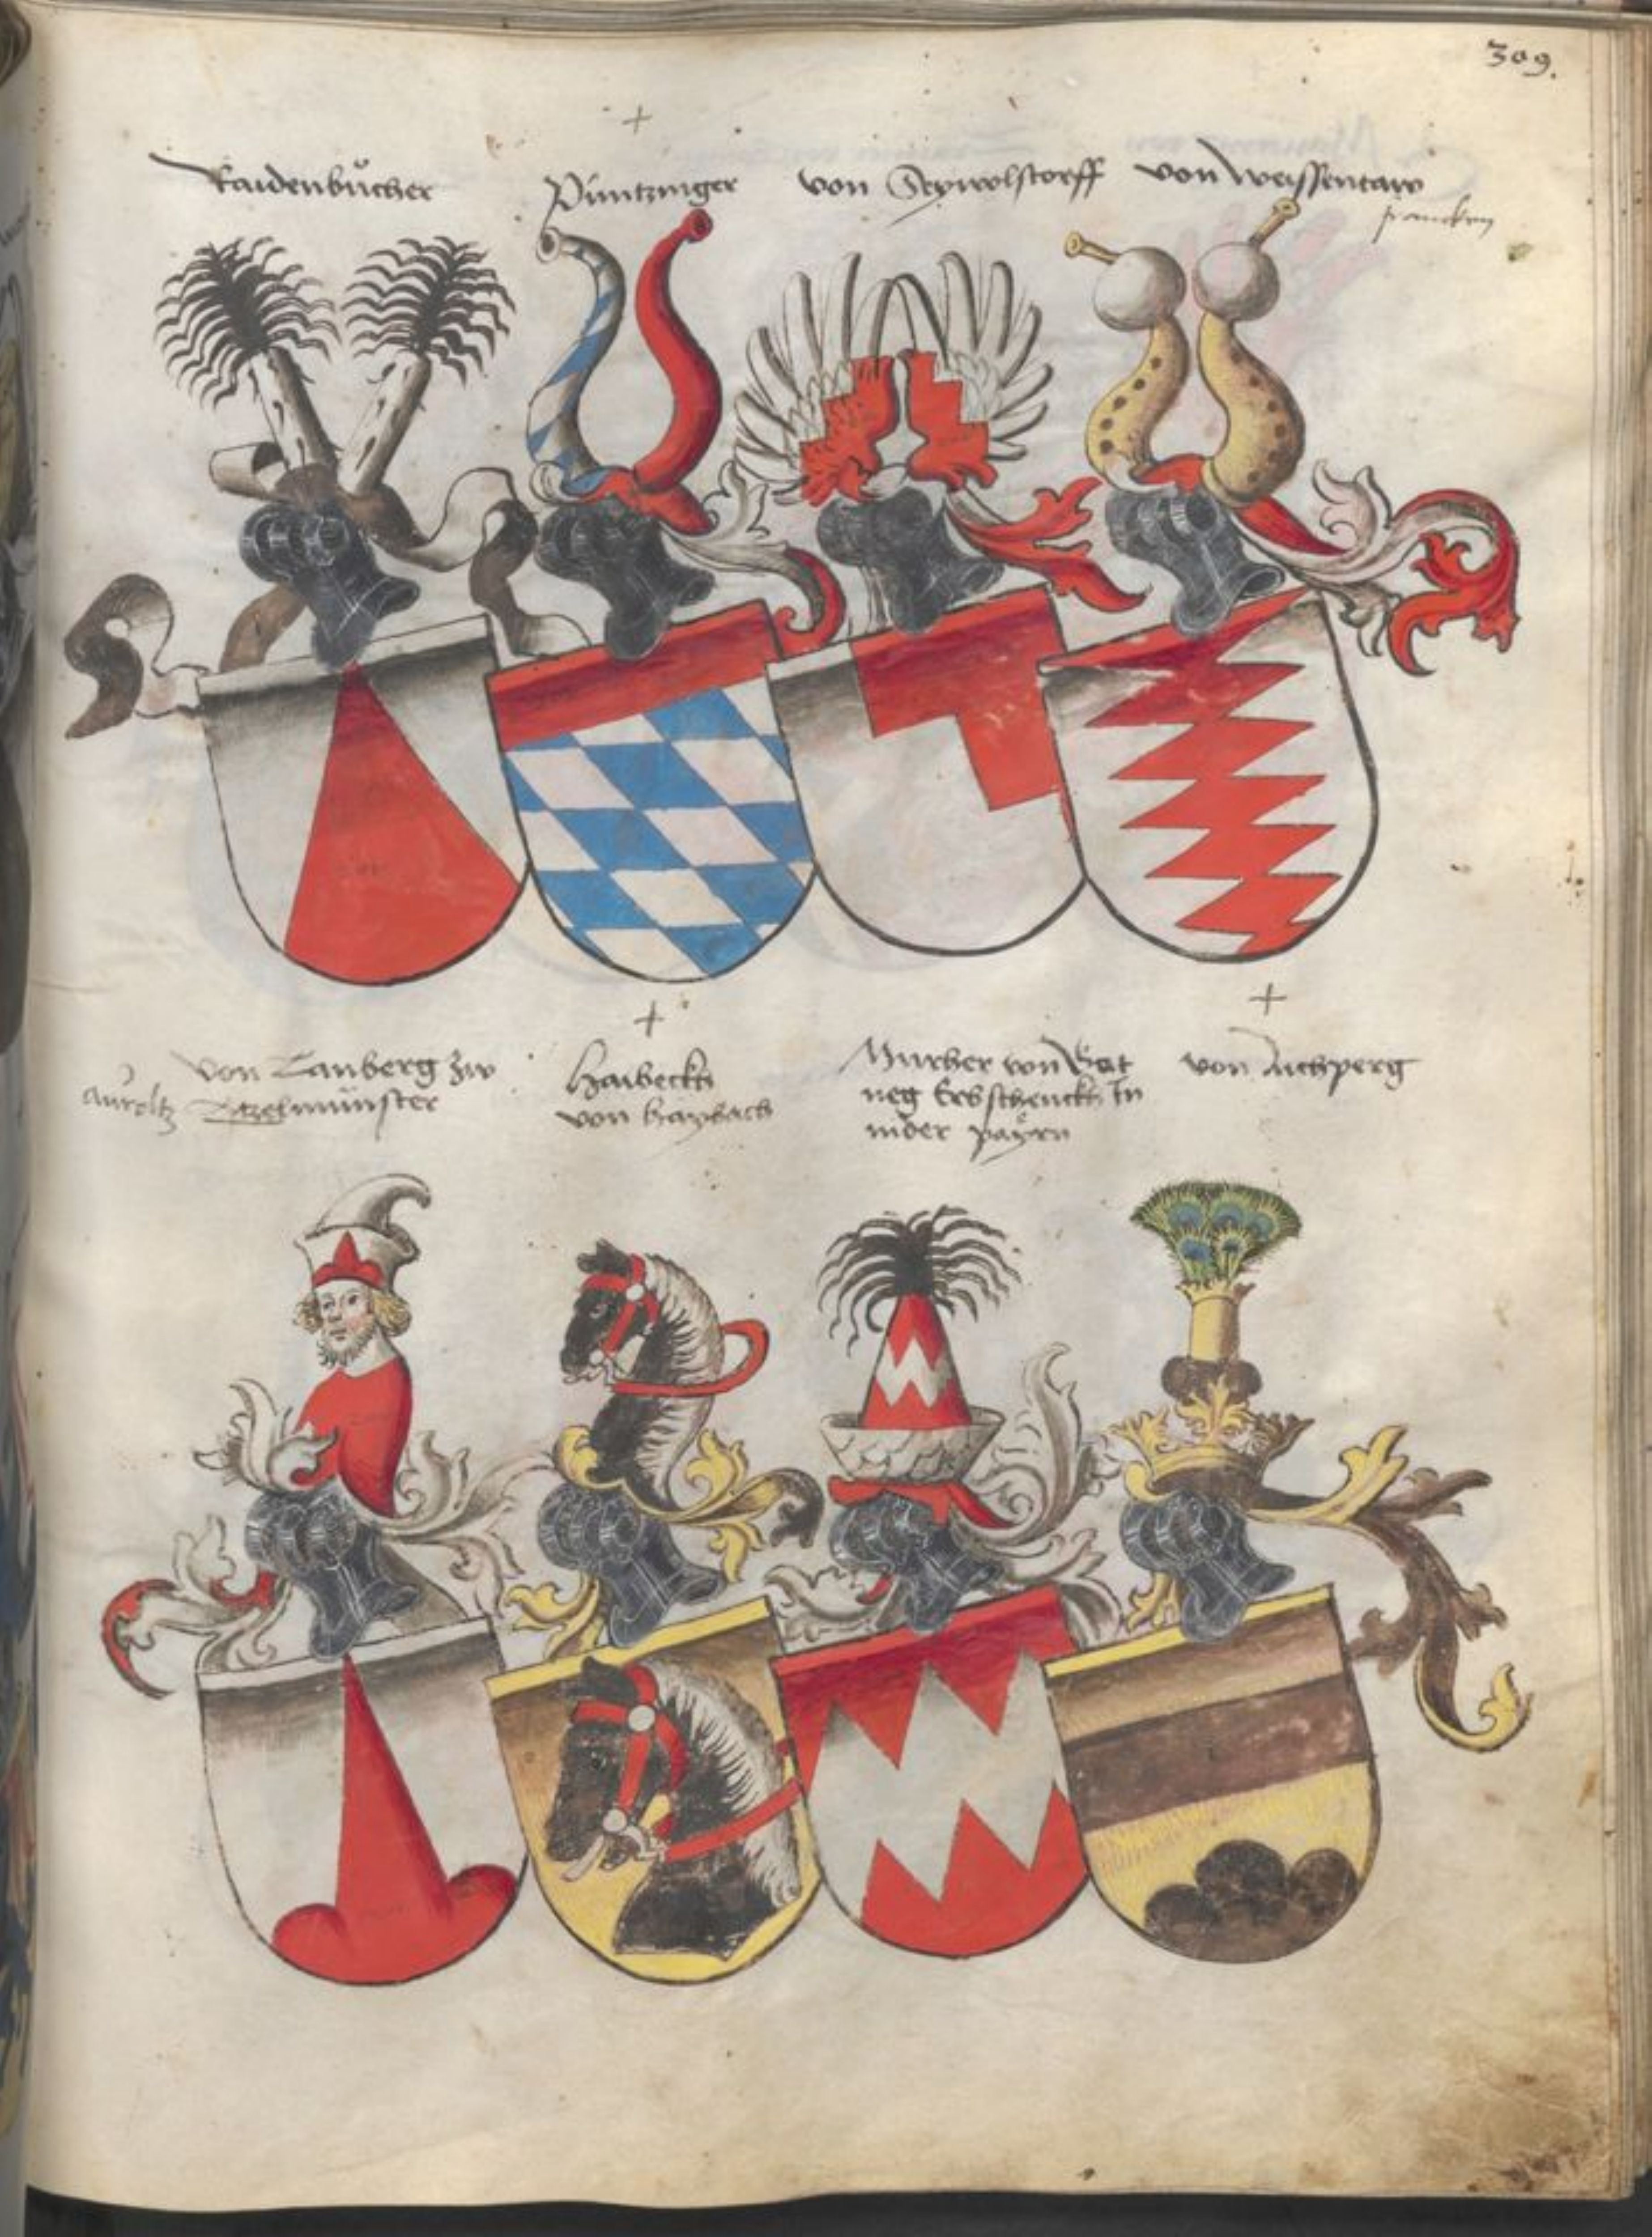 309.
Raidenbůcher
Püntzinger
von Seywolstorff
von Weissentaw
francken
von Tanberg zw
Aůroltz
Münster
Haibeckh
von Haybach
Murher von Gut
neg Erbschenckh In
nider payrn
von Aichperg